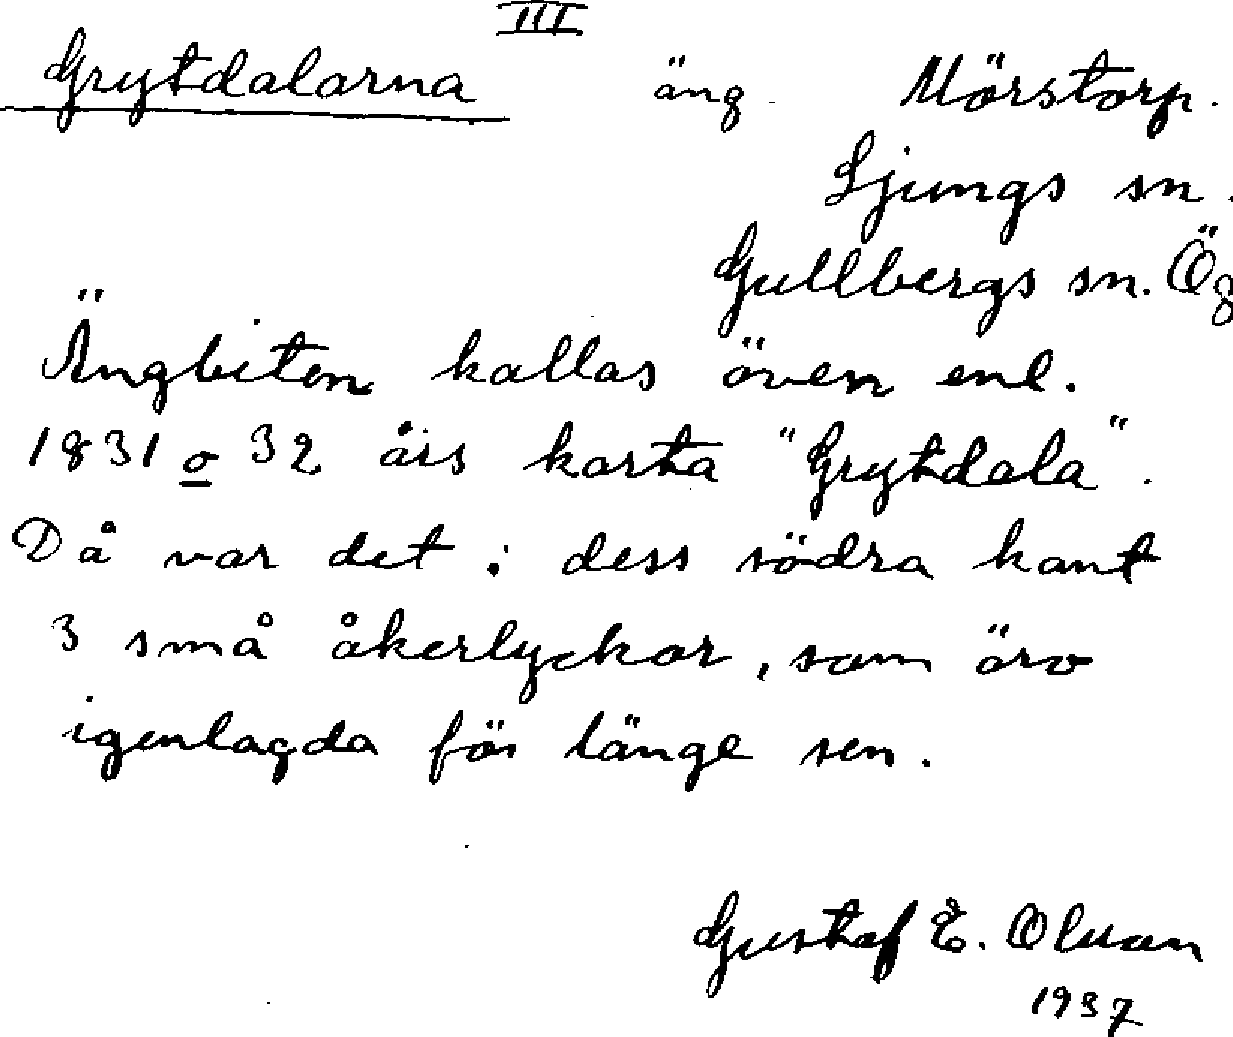 III
Grytdalarna äng. Mörstorp.
Ljungs sn.
Gullbergs sn. Ög
Ängbiten kallas även enl.
1831 o 32 års karta "Grytdala".
Då var det i dess södra kant
3 små åkerlyckor, som äro
igenlagda för länge sen.
Gustaf E. Olsson
1937